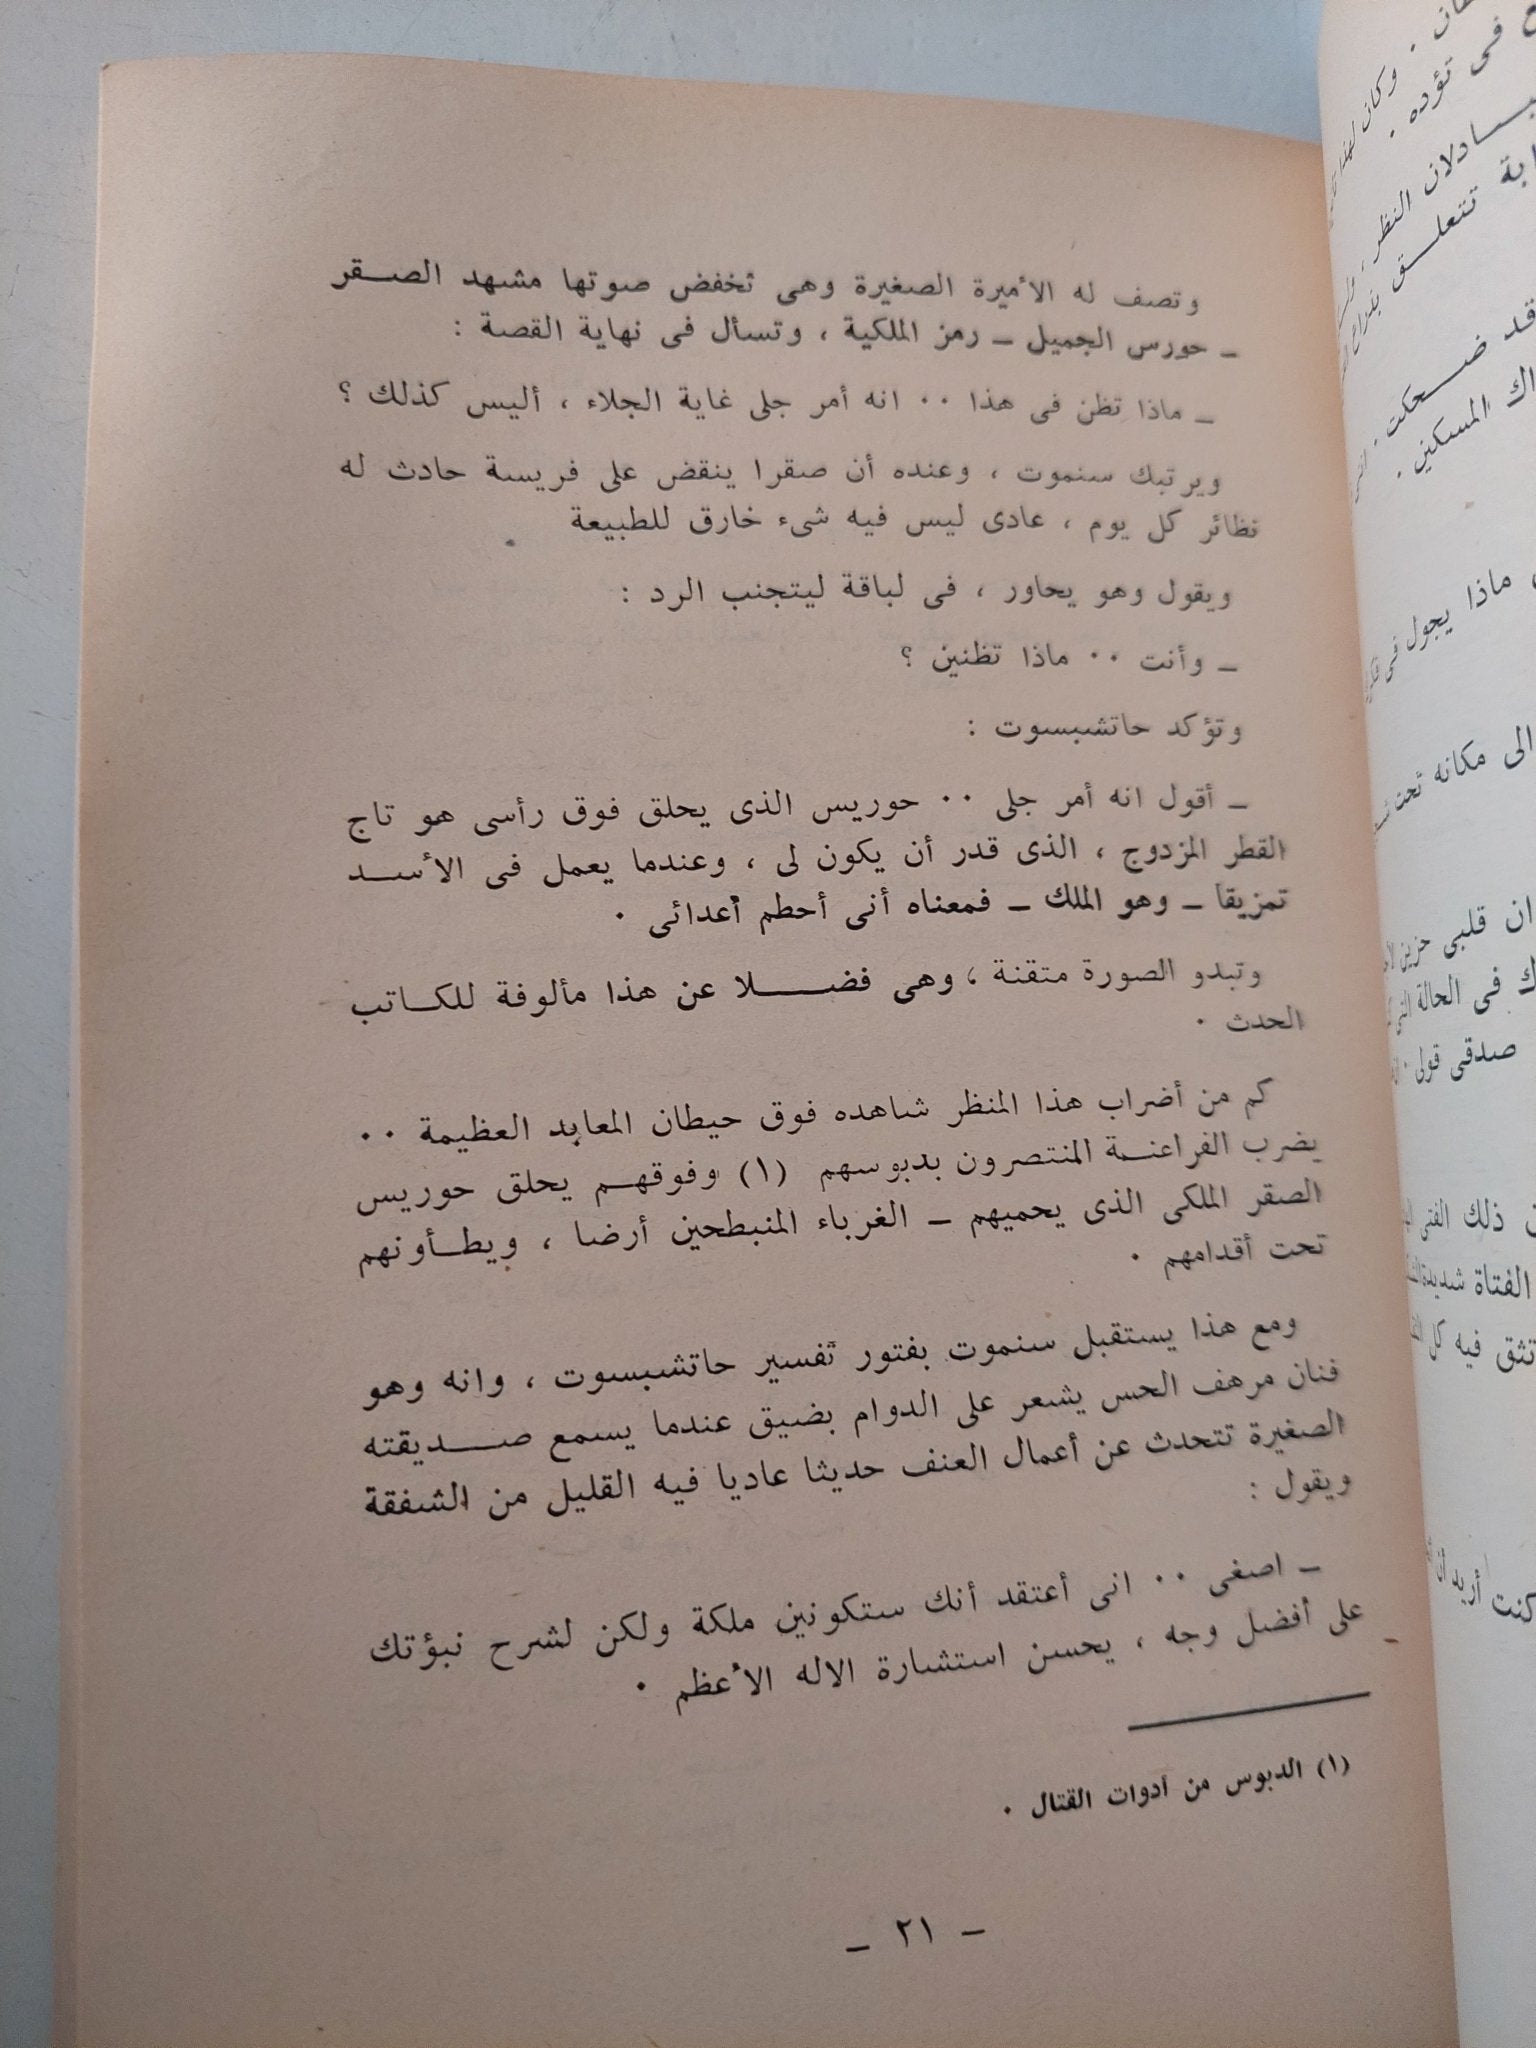 وتصف له الأميرة الصغيرة وهى تخفض صوتها مشهد الصقر
ـ حورس الجميل ـ رمز الملكية ، وتسأل فى نهاية القصة :
ـ ماذا تظن فى هذا ٠٠ انه أمر جلى غاية الجلاء ، أليس كذلك ؟
ويرتبك سنموت ، وعنده أن صقرا ينقض على فريسة حادث له
نظائر كل يوم ، عادى ليس فيه شىء خارق للطبيعة ٠
ويقول وهو يحاور ، فى لباقة ليتجنب الرد :
ـ وأنت ٠٠ ماذا تظنين ؟
وتؤكد حاتشبسوت :
ـ أقول انه أمر جلى ٠٠ حوريس الذى يحلق فوق رأسى هو تاج
القطر المزدوج ، الذى قدر أن يكون لى ، وعندما يعمل فى الأسد
تمزيقا ـ وهو الملك ـ فمعناه أنى أحطم أعدائى ٠
وتبدو الصورة متقنة ، وهى فضلا عن هذا مألوفة للكاتب
الحدث ٠
كم من أضراب هذا المنظر شاهده فوق حيطان المعابد العظيمة ٠٠
يضرب الفراعنة المنتصرون بدبوسهم (١) وفوقهم يحلق حوريس
الصقر الملكى الذى يحميهم ـ الغرباء المنبطحين أرضا ، ويطأونهم
تحت أقدامهم ٠
ومع هذا يستقبل سنموت بفتور تفسير حاتشبسوت ، وانه وهو
فنان مرهف الحس يشعر على الدوام بضيق عندما يسمع صديقته
الصغيرة تتحدث عن أعمال العنف حديثا عاديا فيه القليل من الشفقة
ويقول :
ـ اصغى ٠٠ انى أعتقد أنك ستكونين ملكة ولكن لشرح نبؤتك
على أفضل وجه ، يحسن استشارة الاله الأعظم ٠
(١) الدبوس من أدوات القتال ٠
ـ ٢١ ـ
فى تؤده ٠
النظر
تتعلق
قد ضحكت ٠
المسكين ٠
ماذا يجول فى
الى مكانه تحت
ان قلبى حزين
فى الحالة التى
صدقى قولى ٠
ذلك الفتى
الفتاة شديدة
تثق فيه كل
كنت أريد أن